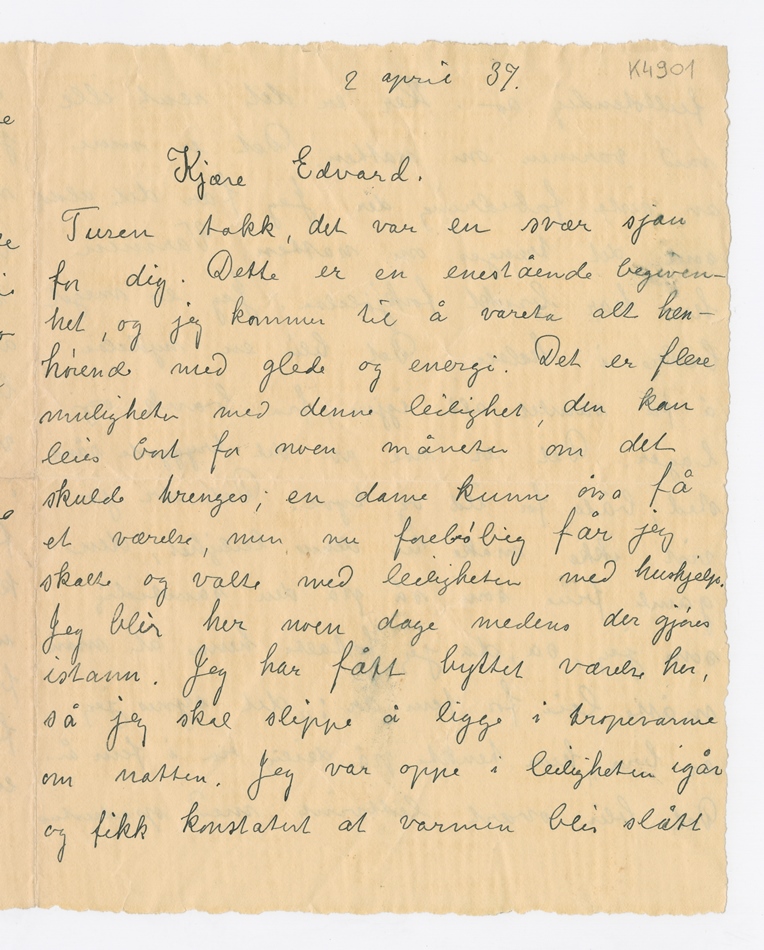 K4901
2 april 37.
Kjære Edvard.
Tusen takk, det var en svær sjau
for dig. Dette er en enestående begiven-
het, og jeg kommer til å vareta alt hen-
hørende med glede og energi. Det er flere
muligheter med denne leilighet, den kan
leies bort for noen måneter om det
skulde trenges; en dame kunne ósa få
et værelse, men nu foreløbig får jeg
skalte og valte med leiligheten med hushjelp.
Jeg blir her noen dage medens der gjøres
istann. Jeg har fått byttet værelse her,
så jeg skal slippe å ligge i tropevarme
om natten. Jeg var oppe i leiligheten igår
og fikk konstatert at varmen blir slått